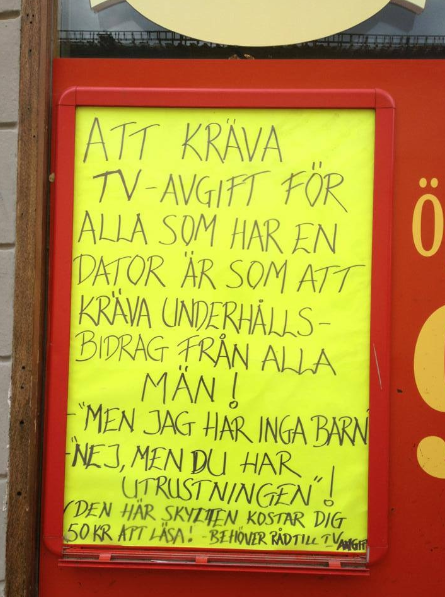 ATT KRÄVA
TV-AVGIFT FÖR
ALLA SOM HAR EN
DATOR ÄR SOM ATT
KRÄVA UNDERHÅLLS-
BIDRAG FRÅN ALLA
MÄN!
-"MEN JAG HAR INGA BARN
-"NEJ, MEN DU HAR
UTRUSTNINGEN"!
(DEN HÄR SKYLTEN KOSTAR DIG
50 KR ATT LÄSA! - BEHÖVER RÅD TILL TV
AVGIFT
Ö